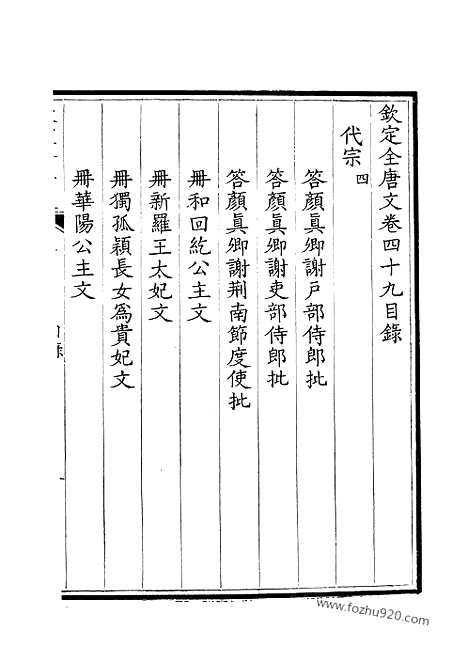 欽定全唐文卷四十九目錄
代宗 四
答顏真卿謝戶部侍郎批
答顏真卿謝吏部侍郎批
答顏真卿謝荆南節度使批
冊和回紇公主文
冊新羅王太妃文
冊獨孤穎長女爲貴妃文
冊華陽公主文
www.fozhu920.com